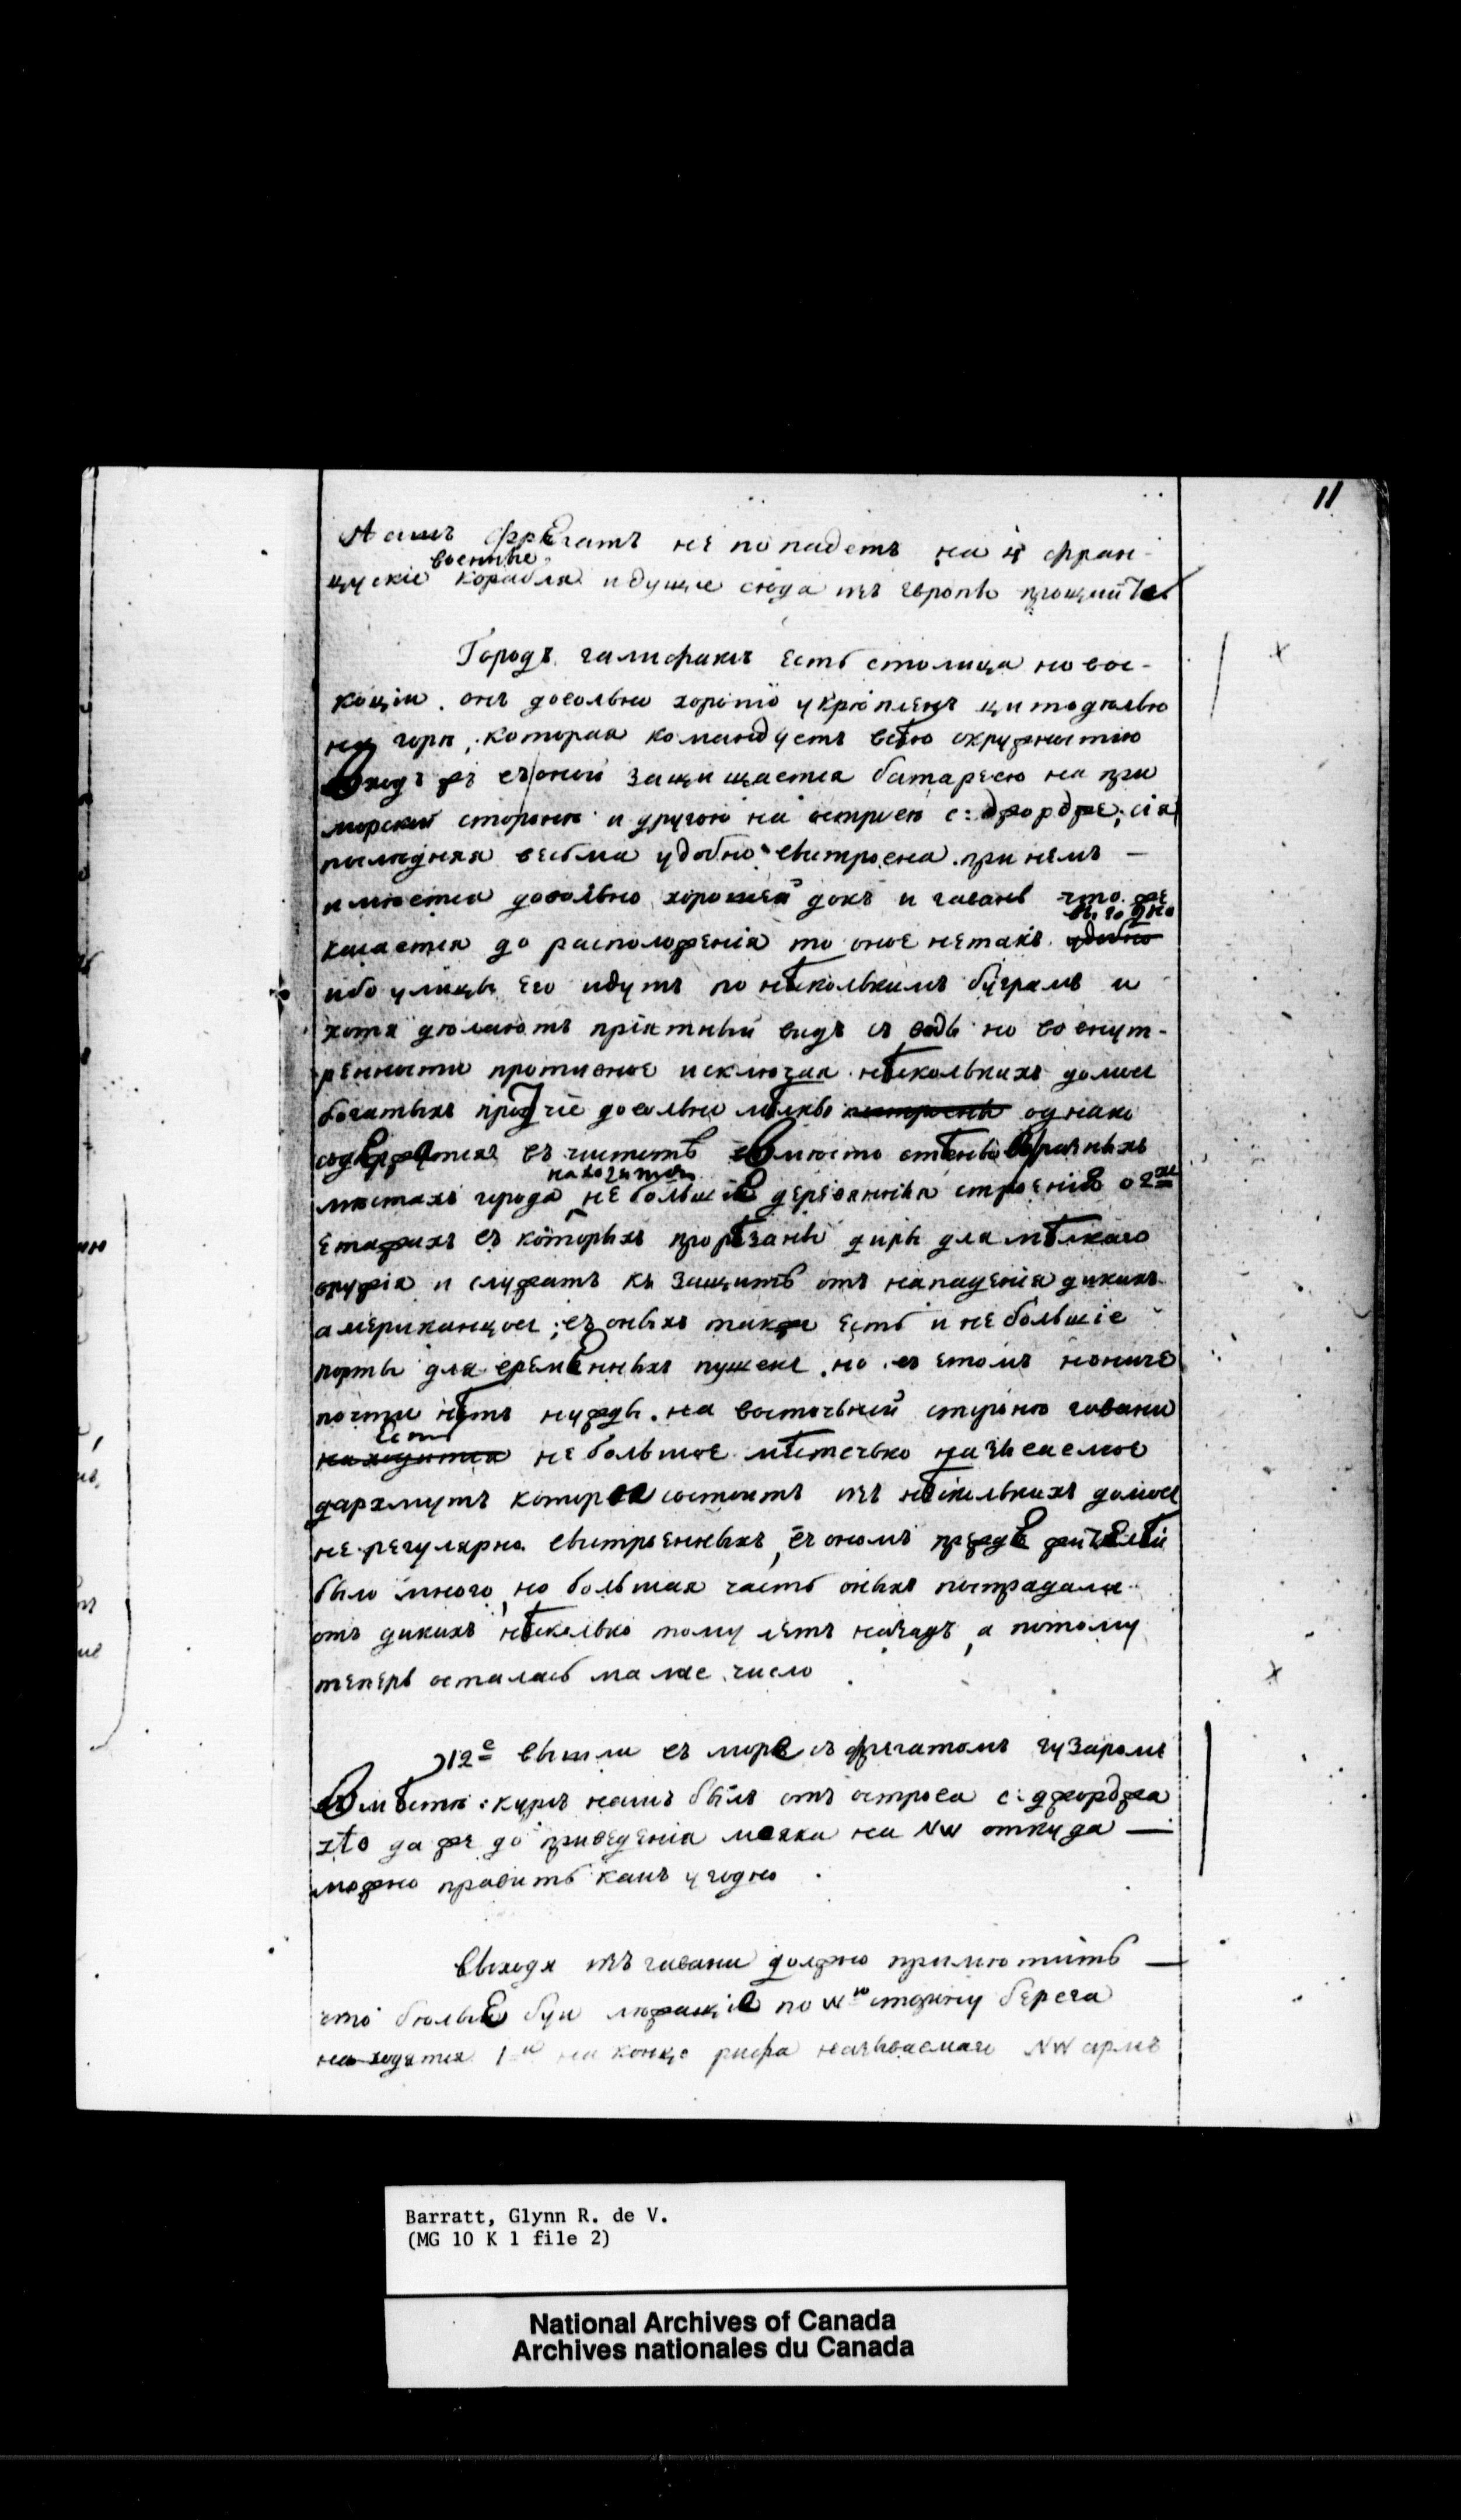 11
нашъ фрегатъ не попадетъ на 4 фран-
цускіе военные корабля идущие сюда изъ европы
Городъ галифаксъ есть столица новос-
коціи. онъ довольно хорошо укрѣпленъ цитаделью
на горѣ, которая командуетъ всѣю окружностію
Входъ въ оной защищается батареею на при
морской сторонѣ и другою на острвѣ с: джордже; сія
послѣдняя весьма удобно выстроена. при немъ —
имѣется довольно хорошей докъ и гавань что же
касается до расположенія то оное нетакъ выгодно
ибо улицы его идутъ по нѣсколькимъ буграмъ и
хотя дѣлаютъ пріятный видъ съ воды но во внут-
ренности противное исключая нѣсколькихъ домов
богатыхъ прочіе довольно мѣлки построены однако
содержатся въ чистотѣ Вмѣсто стѣнъ въ разныхъ
мѣстахъ города находятся не большіе деревянныя строенія о 2хъ
етажахъ въ которыхъ прорѣзаны дыры для мѣлкаго
оружія и служатъ къ защитѣ отъ нападенія дикихъ
американцов; въ оныхъ также есть и не большіе
порты для временныхъ пушекъ. но въ етомъ нониче
почти нѣтъ нужды. на восточьной сторонѣ гавани
находится есть не большое мѣстечько называемое
дархмутъ которое состоитъ изъ нѣсколькихъ домов
не регулярно выстроенныхъ, въ ономъ прежде жителѣй
было много, но большая часть оныхъ пострадала
отъ дикихъ нѣсколько тому летъ назадъ, а потому
теперь осталась малое число.
12е вышли въ море съ фрегатомъ гузаромъ
Вмѣстѣ: курсъ нашъ былъ отъ острова с: джорджа
StO даже до приведенія маяка на NW откуда —
можно править какъ угодно.
Выходя изъ гавани должно примѣтить —
что бѣлые буи лежащіе по W-ю сторону берега
находятся 1-й на концѣ рифа называемаго NW армъ
Barratt, Glynn R. de V.
(MG 10 K 1 file 2)
National Archives of Canada
Archives nationales du Canada